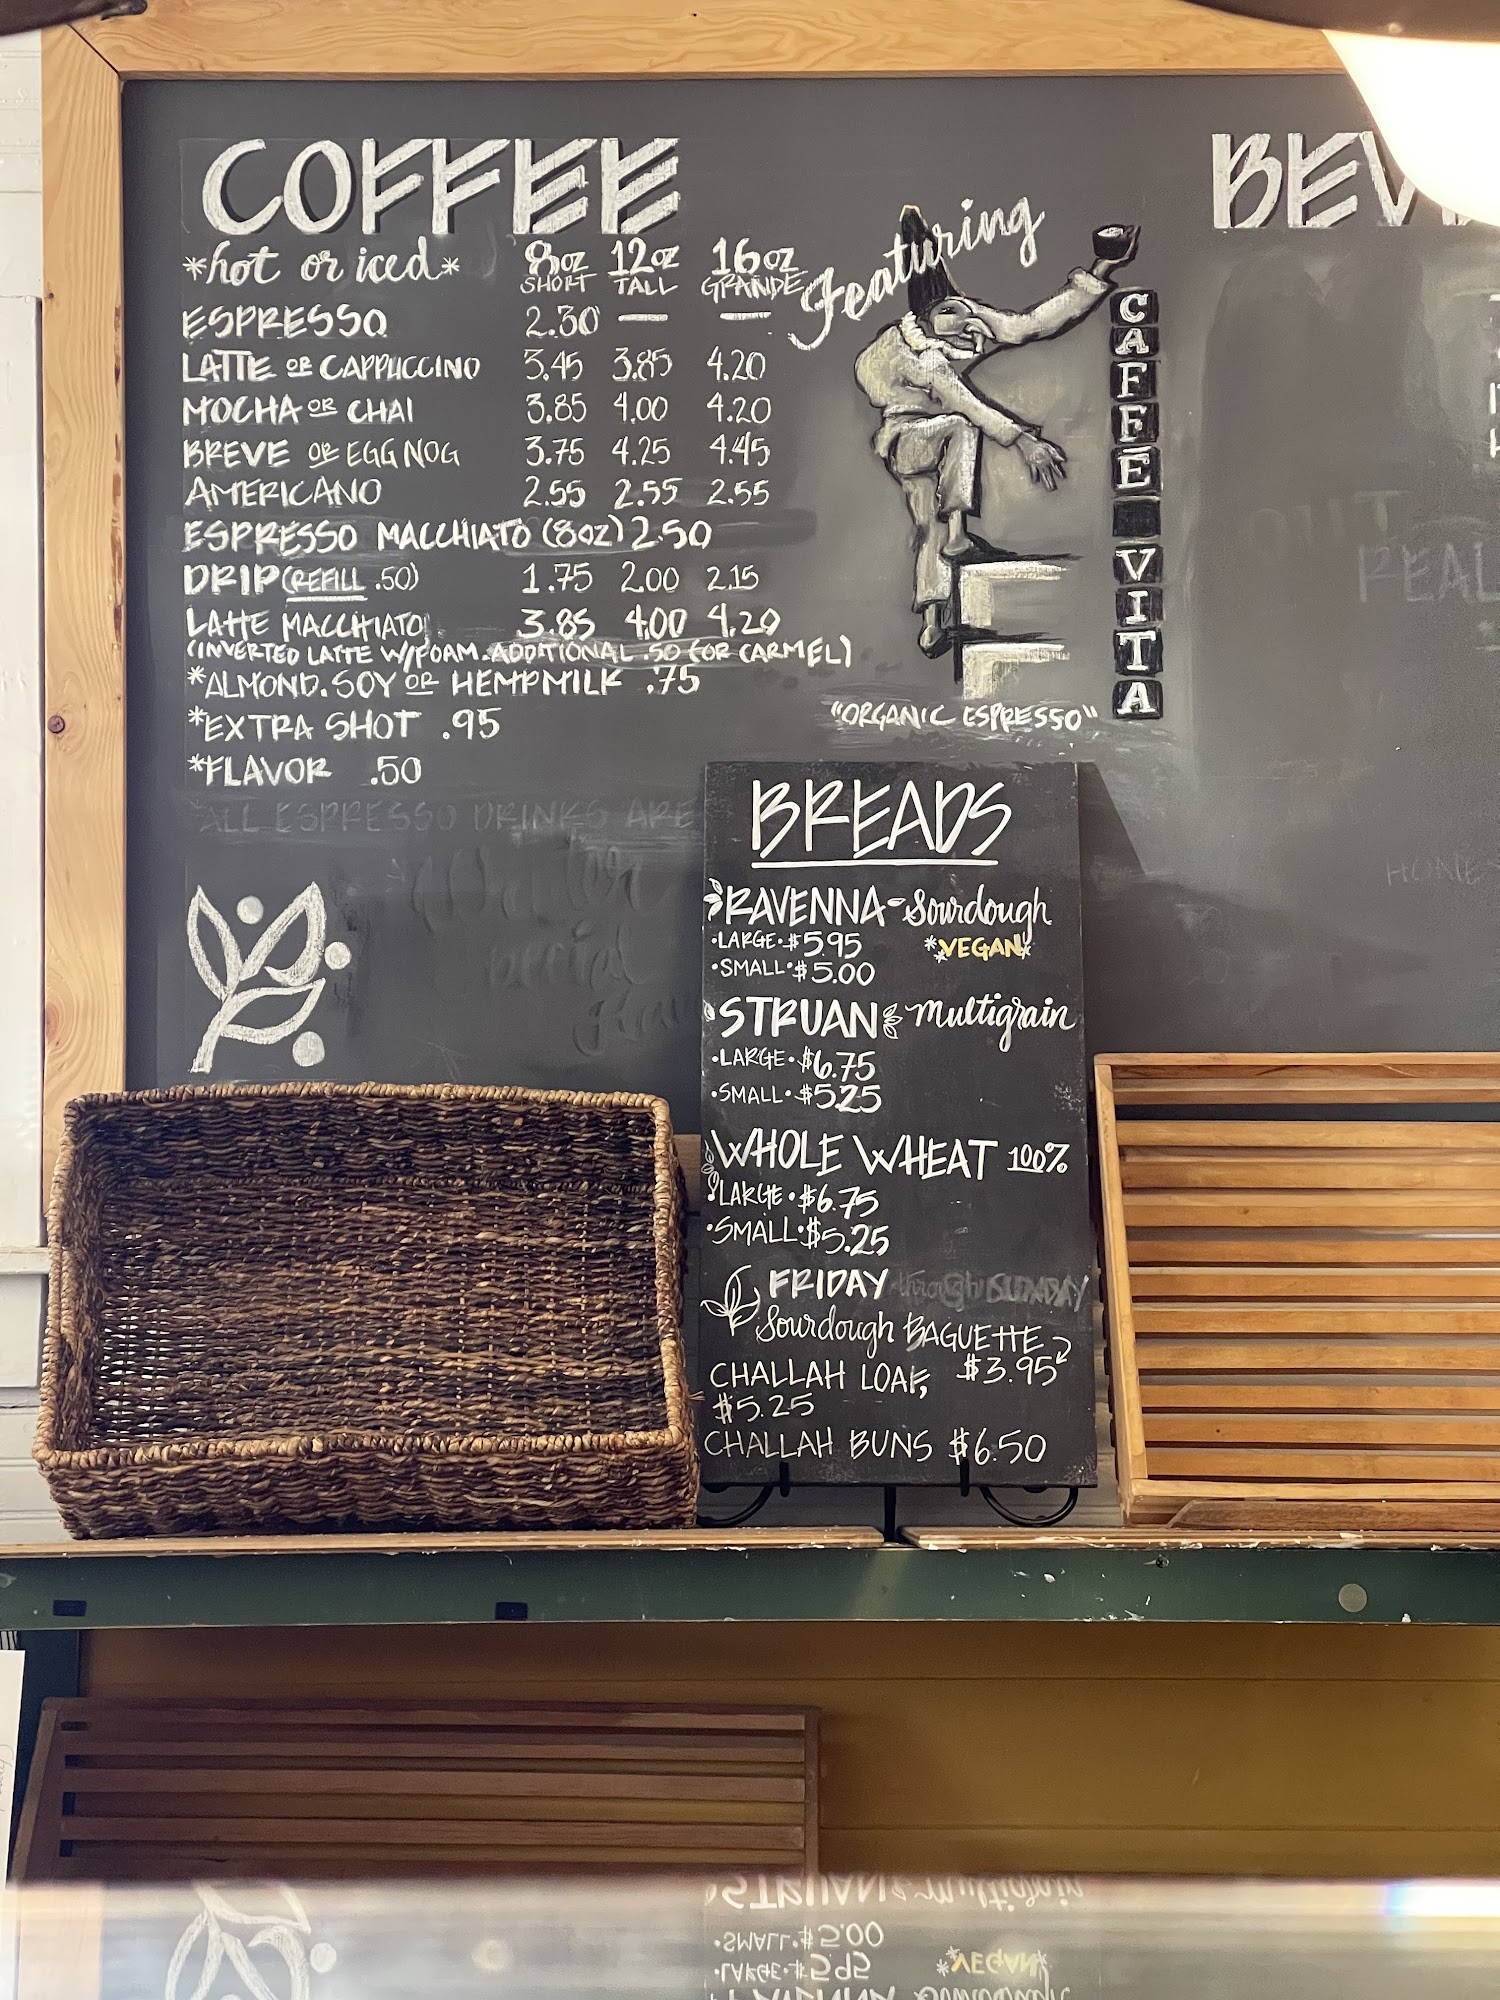 COFFEE
*hot or iced*
8oz 12oz 16oz
SHORT TALL GRANDE
ESPRESSO 2.30 — —
LATTE OR CAPPUCCINO 3.45 3.85 4.20
MOCHA OR CHAI 3.85 4.00 4.20
BREVE OR EGG NOG 3.75 4.25 4.45
AMERICANO 2.55 2.55 2.55
ESPRESSO MACCHIATO (8oz) 2.50
DRIP (REFILL .50) 1.75 2.00 2.15
LATTE MACCHIATO 3.85 4.00 4.20
(INVERTED LATTE W/FOAM. ADDITIONAL .50 FOR CARMEL)
*ALMOND. SOY OR HEMPMILK .75
*EXTRA SHOT .95
*FLAVOR .50
*ALL ESPRESSO DRINKS ARE
Featuring
CAFFÉ VITA
"ORGANIC ESPRESSO"
REAL
HONE
BREADS
RAVENNA - Sourdough
•LARGE•$5.95 *VEGAN*
•SMALL•$5.00
STRUAN Multigrain
•LARGE•$6.75
•SMALL•$5.25
WHOLE WHEAT 100%
•LARGE•$6.75
•SMALL•$5.25
FRIDAY through SUNDAY
Sourdough BAGUETTE
$3.95
CHALLAH LOAF,
$5.25
CHALLAH BUNS $6.50